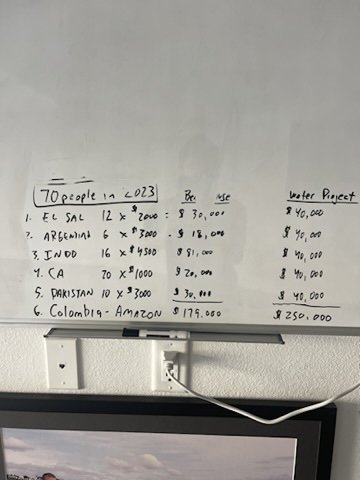 70 people in 2023 Water Project
1. EL SAL 12 x $2000 = $30,000 $40,000
2. ARGENTINA 6 x $3000 = $18,000 $40,000
3. INDO 16 x $4500 $81,000 $40,000
4. CA 20 x $1000 $20,000 $40,000
5. PAKISTAN 10 x $3000 $30,000 $40,000
6. Colombia - AMAZON $179,000 $250,000